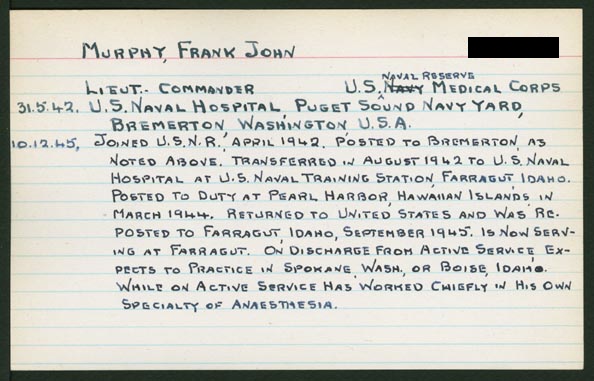 MURPHY, FRANK JOHN
LIEUT.- COMMANDER U.S. NAVY NAVAL RESERVE MEDICAL CORPS
31.5.42. U.S. NAVAL HOSPITAL, PUGET SOUND NAVY YARD,
BREMERTON, WASHINGTON, U.S.A.
10.12.45. JOINED U.S.N.R., APRIL 1942. POSTED TO BREMERTON, AS
NOTED ABOVE. TRANSFERRED IN AUGUST 1942 TO U.S. NAVAL
HOSPITAL AT U.S. NAVAL TRAINING STATION, FARRAGUT, IDAHO.
POSTED TO DUTY AT PEARL HARBOR, HAWAIIAN ISLANDS, IN
MARCH 1944. RETURNED TO UNITED STATES AND WAS RE-
POSTED TO FARRAGUT, IDAHO, SEPTEMBER 1945. IS NOW SERV-
ING AT FARRAGUT. ON DISCHARGE FROM ACTIVE SERVICE, EX-
PECTS TO PRACTICE IN SPOKANE, WASH., OR BOISE, IDAHO.
WHILE ON ACTIVE SERVICE HAS WORKED CHIEFLY IN HIS OWN
SPECIALTY OF ANAESTHESIA.